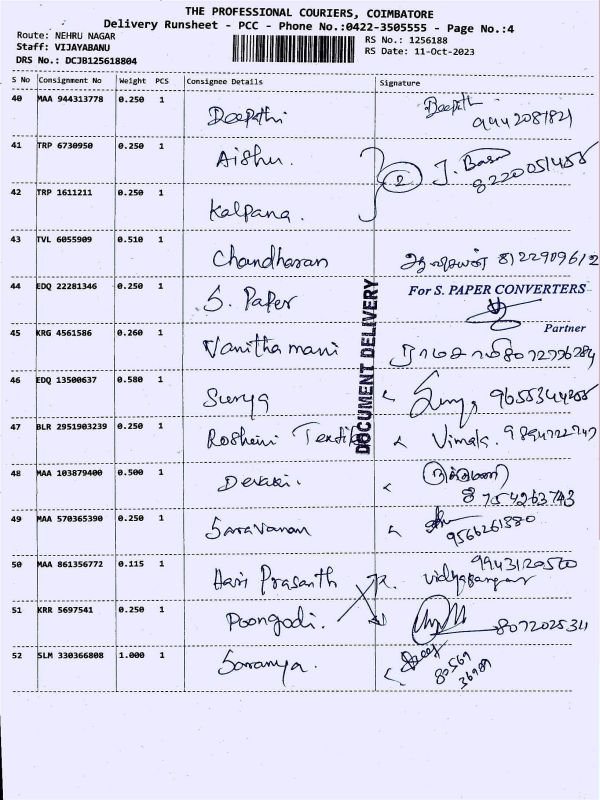 THE PROFESSIONAL COURIERS, COIMBATORE
Delivery Runsheet - PCC - Phone No.:0422-3505555 - Page No.:4
Route: NEHRU NAGAR
Staff: VIJAYABANU
DRS No.: DCJB125618804
RS No.: 1256188
RS Date: 11-Oct-2023
S No Consignment No Weight PCS Consignee Details Signature
40 MAA 944313778 0.250 1 Deepthi Deepth
9442081821
41 TRP 6730950 0.250 1 Aishu. 2 J.
42 TRP 1611211 0.250 1 Kalpana.
43 TVL 6055909 0.510 1 Chandharan 8122909612
44 EDQ 22281346 0.250 1 S. Paper For S. PAPER CONVERTERS
Partner
DOCUMENT DELIVERY
45 KRG 4561586 0.260 1 Vanitha mani
46 EDQ 13500637 0.580 1 Surya
47 BLR 2951903239 0.250 1 Roshini Vimala.
48 MAA 103879400 0.500 1 Devaki.
8754263743
49 MAA 570365390 0.250 1 Saravanan
9566261380
50 MAA 861356772 0.115 1 Hari Prasanth 9943120570
51 KRR 5697541 0.250 1 Poongodi.
52 SLM 330366808 1.000 1 Saranya.
80569
36989